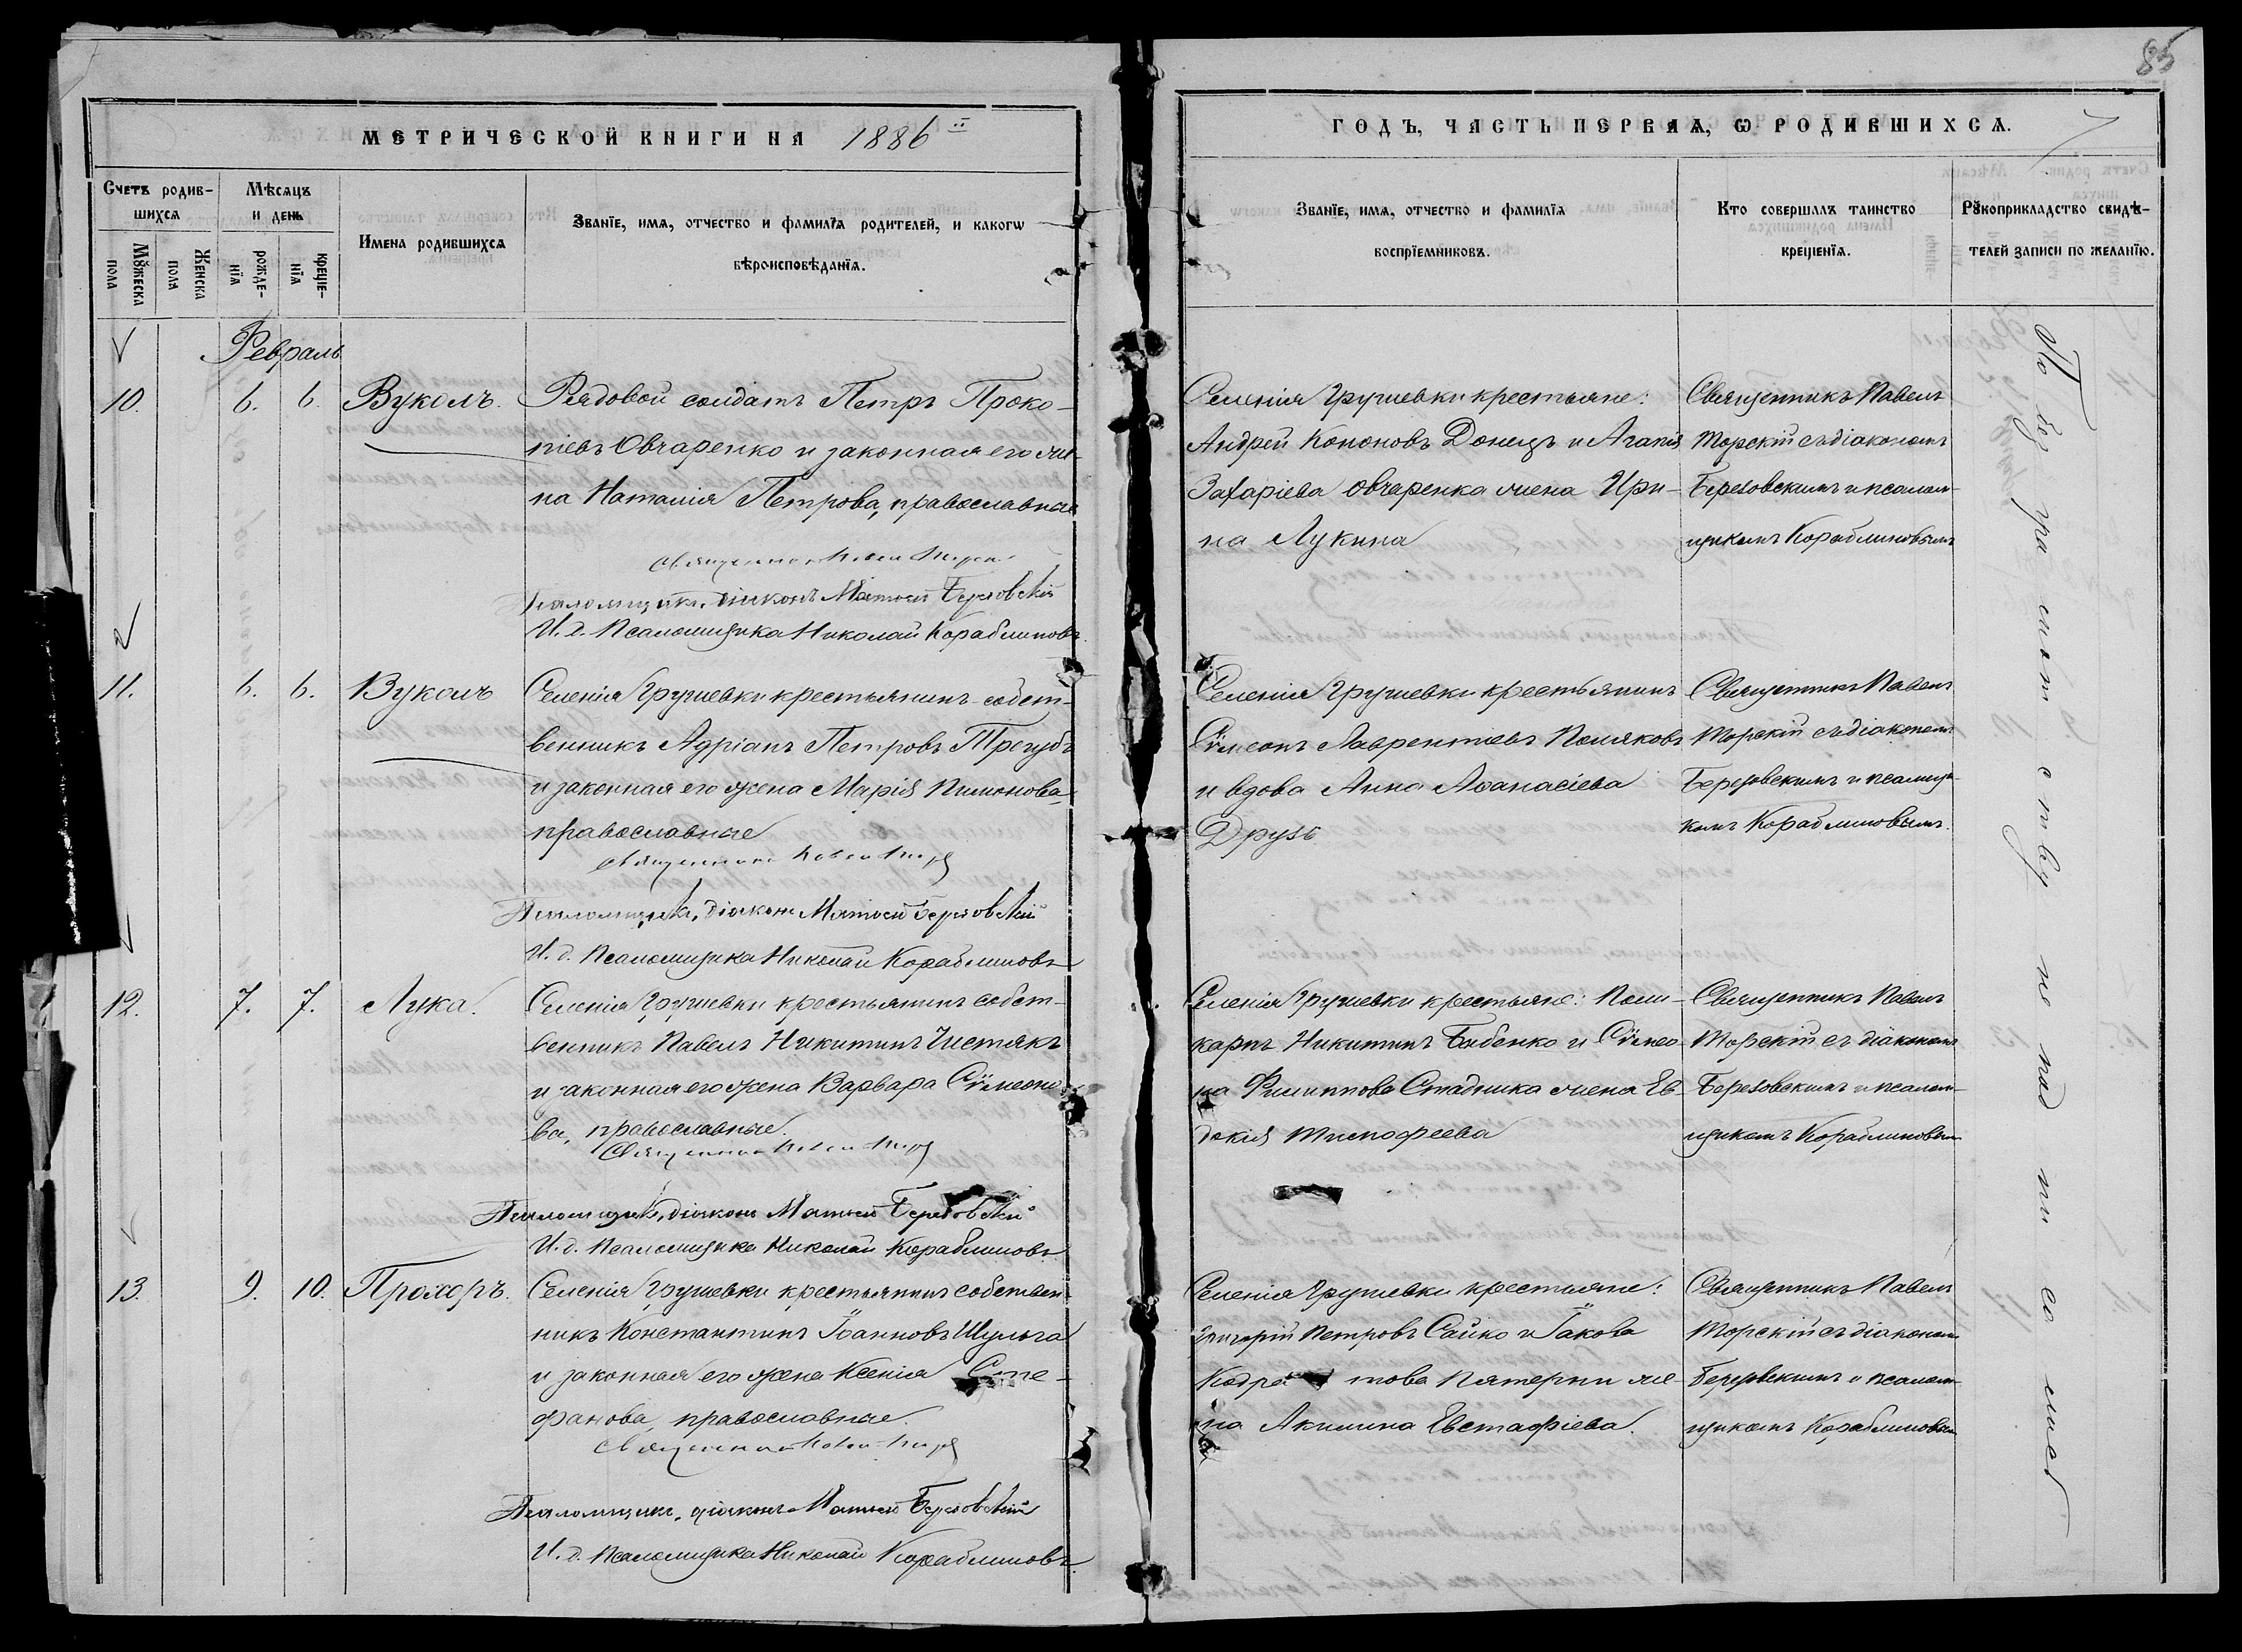 85
МЕТРИЧЕСКОЙ КНИГИ НА 1886
ГОДЪ, ЧАСТЬ ПЕРВАЯ, Ѡ РОДИВШИХСЯ.
Счетъ родив-
шихся
Мѹжеска
пола
Женска
пола
Мѣсяцъ
и день
рожде-
нїя
креще-
нїя
Имена родившихся
Званїе, имя, отчество и фамилїя родителей, и какогѡ
вѣроисповѣданїя.
Званїе, имя, отчество и фамилїя
воспрїемниковъ.
Кто совершалъ таинство
крещенїя.
Рѹкоприкладство свидѣ-
телей записи по желанїю.
Февраль
10.
6.
6.
Вуколъ.
Рядовой солдатъ Петръ Проко-
піевъ Овчаренко и законная его же-
на Наталія Петрова, православные
Псаломщикъ, діаконъ Матѳей Березовскій
И. д. Псаломщика Николай Кораблиновъ.
Селенія Грушевки крестьяне:
Андрей Кононовъ Донецъ и Агапія
Захаріева Овчаренка жена Ири-
на Лукина
Священникъ Павелъ
Торскій съ діакономъ
Березовскимъ и псалом-
щикомъ Кораблиновымъ
11.
6.
6.
Вуколъ
Селенія Грушевки крестьянинъ собст-
венникъ Адріанъ Петровъ Трегубъ
и законная его жена Марія Пимонова,
православные
Псаломщикъ, діаконъ Матѳей Березовскій
И. д. Псаломщика Николай Кораблиновъ
Селенія Грушевки крестьянинъ
Сѵмеонъ Лаврентіевъ Поляковъ
и вдова Анна Аѳанасіева
Друзь
Священникъ Павелъ
Торскій съ діакономъ
Березовскимъ и псаломщи-
комъ Кораблиновымъ.
12.
7.
7.
Лука.
Селенія Грушевки крестьянинъ собст-
венникъ Павелъ Никитинъ Чистякъ
и законная его жена Варвара Сѵмеоно-
ва, православные.
Псаломщикъ, діаконъ Матѳей Березовскій
И. д. Псаломщика Николай Кораблиновъ
Селенія Грушевки крестьяне: Поли-
карпъ Никитинъ Бабенко и Сѵмео-
на Филиппова Стадника жена Ев-
докія Тимофеева
Священникъ Павелъ
Торскій съ діакономъ
Березовскимъ и псалом-
щикомъ Кораблиновым
13.
9.
10.
Прохоръ.
Селенія Грушевки крестьянинъ собствен-
никъ Константинъ Іоанновъ Шульга
и законная его жена Ксенія Сте-
фанова, православные.
Псаломщикъ, діаконъ Матѳей Березовскій
И. д. Псаломщика Николай Кораблиновъ.
Селенія Грушевки крестьяне:
Григорій Петровъ Сайко и Іакова
Кодра това Пятерни же-
на Акилина Евстафіева.
Священникъ Павелъ
Торскій съ діаконом
Березовскимъ и псалом-
щикомъ Кораблиновым